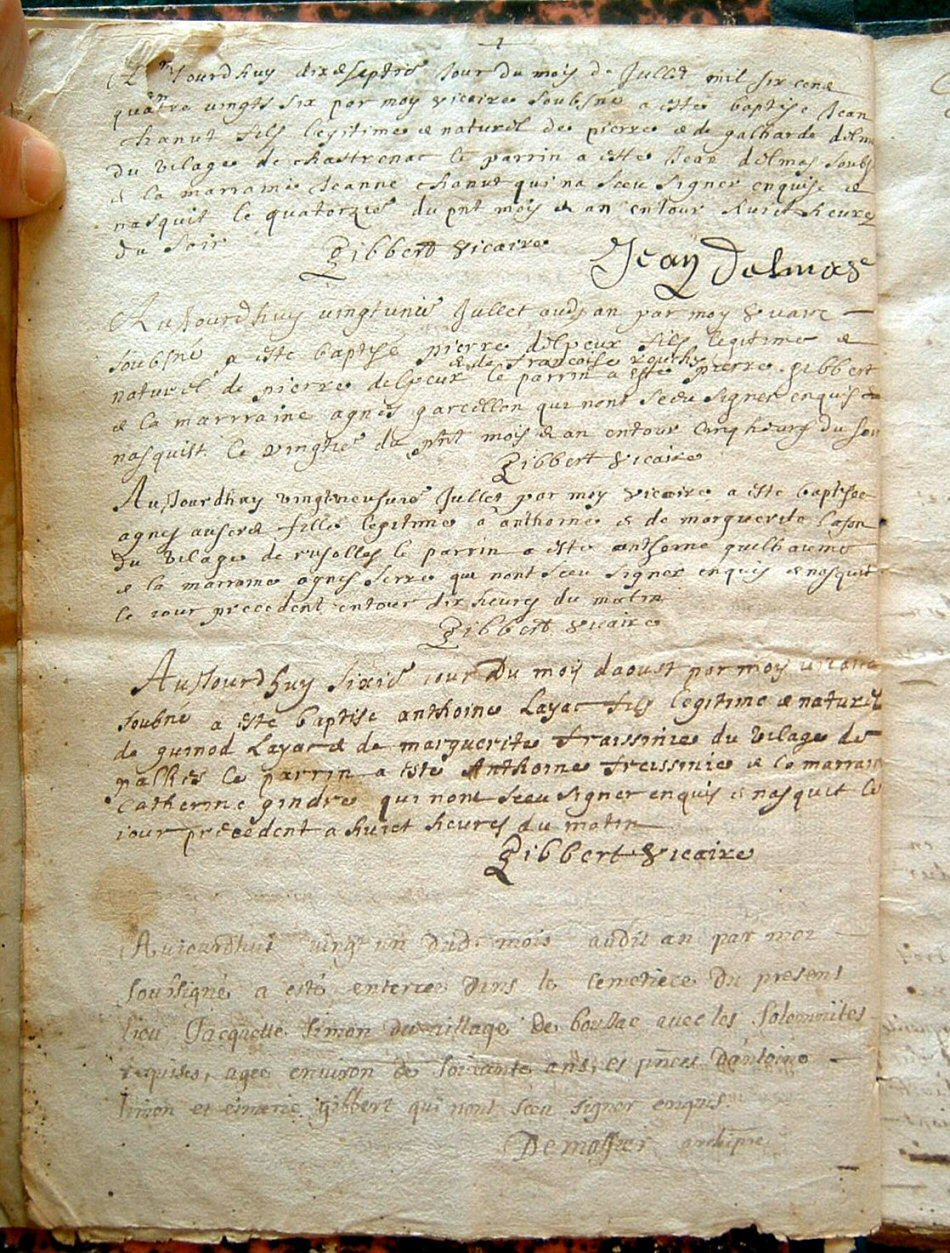 Aujourdhuy dixseptie Jour du mois de Jullet mil six cens
quatre vingts six par moy vicaire soubsné a esté baptisé Jean
chanut fils legitime & naturel de pierre & de galharde delm
du vilage de chastrenac le parrin a esté Jean delmas soubs
& la marraine Jeanne chanut qui na sceu signer enquise &
nasquit le quatorzie du pnt mois & an entour huict heures
du soir
Gibbert vicaire Jean Delmas
Aujourdhuy vingtunie Jullet audj an par moy vicaire
soubsné a esté baptisé pierre delpeux fils legitime &
& de francoise
naturel de pierre delpeux le parrin a esté pierre gibbert
& la marrraine agnes garcellon qui nont sceu signer enquis &
nasquist le vingtie du pnt mois & an entour cinq heures du soir
Gibbert vicaire
Aujourdhuy vingtneufvie Jullet par moy vicaire a esté baptisée
agnes fille legitime a anthoine & de marguerite
du vilage de rusolles le parrin a esté anthoine guilhaume
& la marraine agnes serre qui nont sceu signer enquis & nasquit
le jour precedent entour dix heures du matin
Gibbert vicaire
Aujourdhuy sixie jour Du mois daoust par moy vicaire
soubné a esté baptisé anthoine Layac fils legitime & naturel
de guinod Layac & de marguerite fraissinie du vilage de
le parrin a esté Anthoine freissinie & la marrain
Catherine gindre qui nont sceu signer enquis & nasquit le
jour precedent a huict heures du matin
Gibbert vicaire
Aujourdhui vingt un dud. mois audit an par moi
soussigné a esté enterrée dans le cemetiere du present
lieu Jacquette Simon du village de boussac avec les solemnites
requises, agee environ de soixante ans, es pnces d'antoine
simon et gibbert qui nont sceu signer enquis
archipre